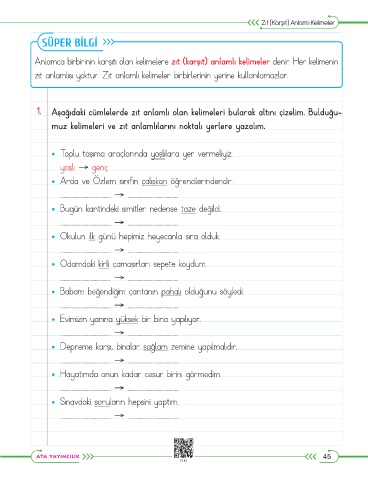 Zıt (Karşıt) Anlamlı Kelimeler
SÜPER BİLGİ
Anlamca birbirinin karşıtı olan kelimelere zıt (karşıt) anlamlı kelimeler denir. Her kelimenin
zıt anlamlısı yoktur. Zıt anlamlı kelimeler birbirlerinin yerine kullanılamazlar.
1. Aşağıdaki cümlelerde zıt anlamlı olan kelimeleri bularak altını çizelim. Bulduğu-
muz kelimeleri ve zıt anlamlılarını noktalı yerlere yazalım.
• Toplu taşıma araçlarında yaşlılara yer vermeliyiz.
yaşlı → genç
• Arda ve Özlem sınıfın çalışkan öğrencilerindendir.
→
• Bugün kantindeki simitler nedense taze değildi.
→
• Okulun ilk günü hepimiz heyecanla sıra olduk.
→
• Odamdaki kirli çamaşırları sepete koydum.
→
• Babam beğendiğim çantanın pahalı olduğunu söyledi.
→
• Evimizin yanına yüksek bir bina yapılıyor.
→
• Depreme karşı, binalar sağlam zemine yapılmalıdır.
→
• Hayatımda onun kadar cesur birini görmedim.
→
• Sınavdaki soruların hepsini yaptım.
→
ATA YAYINCILIK
45